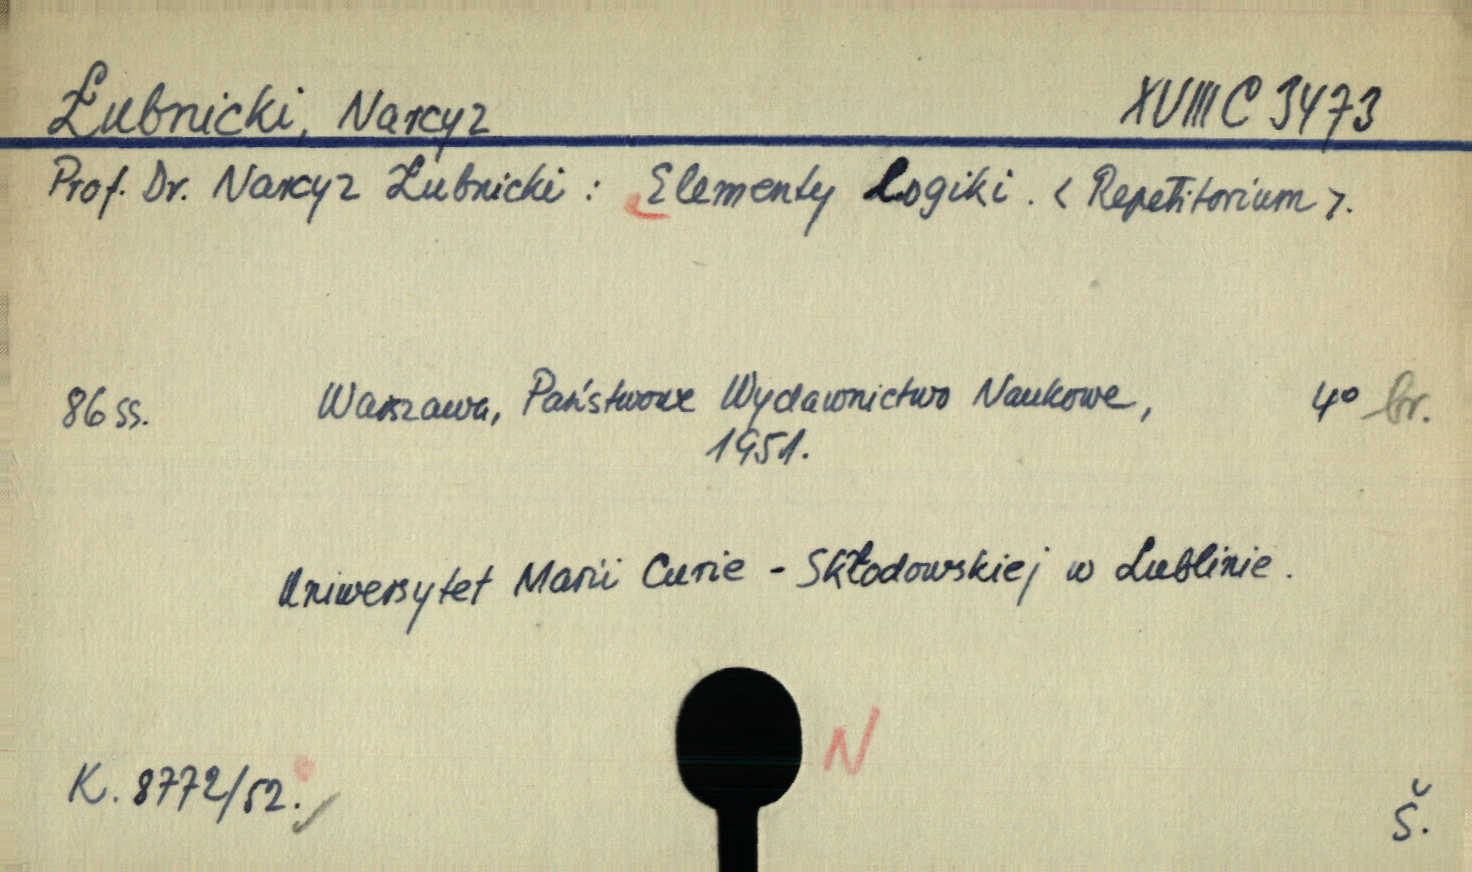 Łubnicki, Narcyz XVIII C 3473
Prof. Dr. Narcyz Łubnicki : Elementy Logiki. < Repetitorium >.
86 ss. Warszawa, Państwowe Wydawnictwo Naukowe, 4° br.
1951.
Uniwersytet Marii Curie - Skłodowskiej w Lublinie.
N
K. 8772/52.
Š.